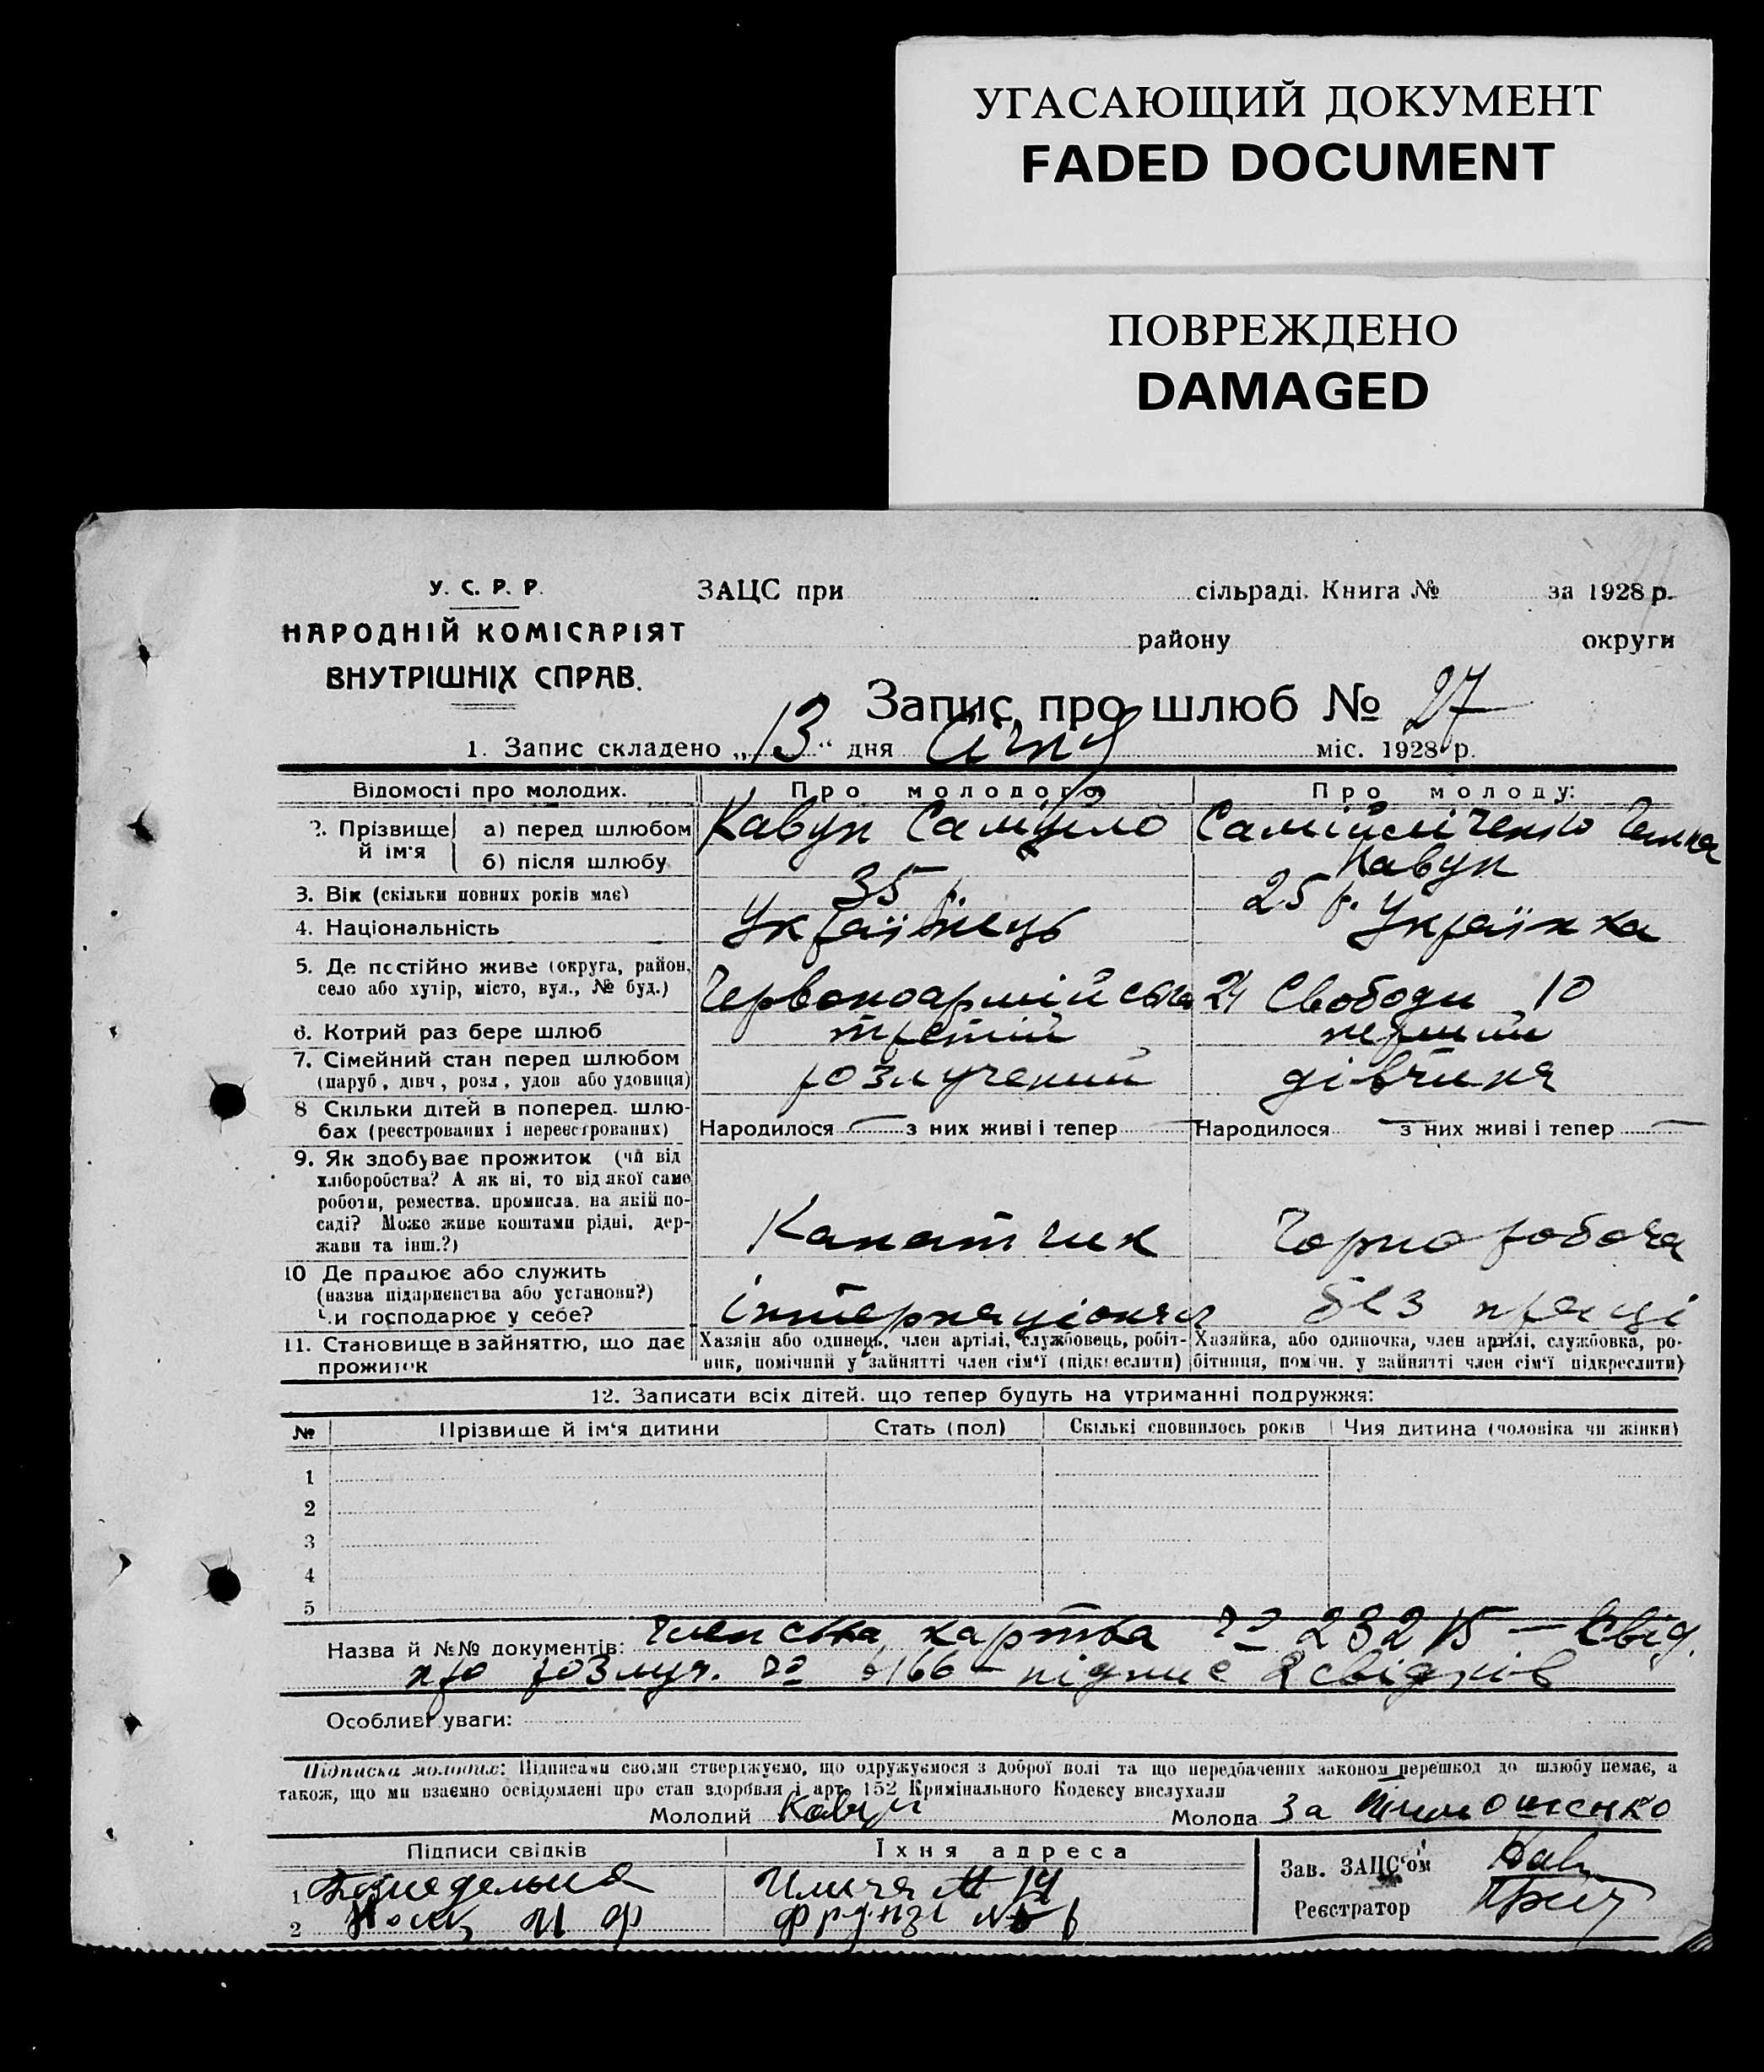 УГАСАЮЩИЙ ДОКУМЕНТ
FADED DOCUMENT
ПОВРЕЖДЕНО
DAMAGED
У. С. Р. Р.
НАРОДНІЙ КОМІСАРІЯТ
ВНУТРІШНІХ СПРАВ.
ЗАЦС при сільраді. Книга № за 1928 р.
району округи
Запис про шлюб № 27
1. Запис складено „13“ дня Січня міс. 1928 р.
Відомості про молодих. Про молодого Про молоду:
2. Прізвище й ім'я а) перед шлюбом Кавун Самуїло Самійліченко
б) після шлюбу Кавун
3. Вік (скільки повних років має) 35 25 р.
4. Національність Українець Українка
5. Де постійно живе (округа, район, село або хутір, місто, вул., № буд.) Червоноармійська 24 Свободи 10
6. Котрий раз бере шлюб третій перший
7. Сімейний стан перед шлюбом (паруб., дівч., розл., удов. або удовиця) розлучений дівчина
8 Скільки дітей в поперед. шлюбах (реєстрованих і нереєстрованих) Народилося — з них живі і тепер — Народилося — з них живі і тепер —
9. Як здобуває прожиток (чи від хліборобства? А як ні, то від якої саме роботи, ремества, промисла, на якій посаді? Може живе коштами рідні, держави та інш.?) Канатчик Чорноробоча
10 Де працює або служить (назва підприємства або установи?) Чи господарює у себе? інтернаціонал без праці
11. Становище в зайняттю, що дає прожиток Хазяїн або одинець, член артілі, службовець, робітник, помічний у зайнятті член сім'ї (підкреслити) Хазяйка, або одиночка, член артілі, службовка, робітниця, помічн. у зайнятті член сім'ї підкреслити)
12. Записати всіх дітей, що тепер будуть на утриманні подружжя:
№ Прізвище й ім'я дитини Стать (пол) Скількі сповнилось років Чия дитина (чоловіка чи жінки)
1
2
3
4
5
Назва й №№ документів: Членська картка № 23215 — Свід.
про розлуч. № 6166 — підпис 2 свідків
Особливі уваги:
Підписка молодих: Підписами своїми стверджуємо, що одружуємося з доброї волі та що передбачених законом перешкод до шлюбу немає, а
також, що ми взаємно освідомлені про стан здоров'я і арт. 152 Кримінального Кодексу вислухали
Молодий Кавун Молода За Тимошенко
Підписи свідків Їхня адреса
1 Ілича № 14
2 Фрунзе № 6
Зав. ЗАЦС'ом
Реєстратор